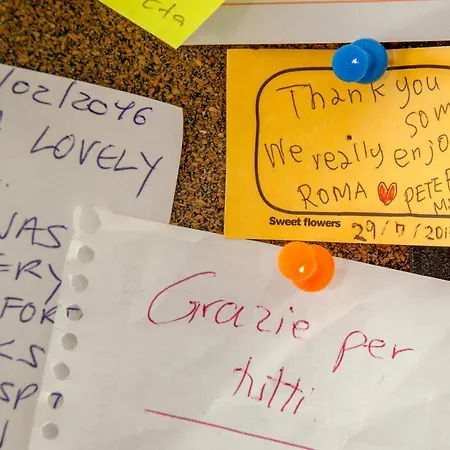 cta
/02/2046
LOVELY
WAS
ERY
FOR
KS
SP
Thank you
som
We really enjo
ROMA ❤ PETE
Sweet flowers
29/7/201
Grazie per
tutti